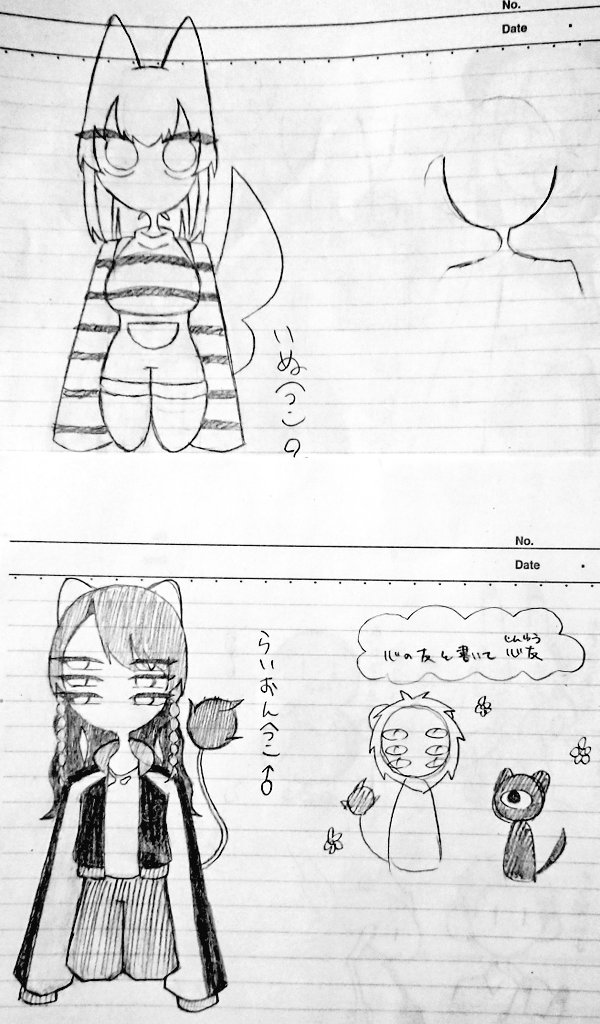 No.
Date
いぬへっこ
No.
Date
らいおんへっこ ♂
心の友と書いて 心友
しんゆう